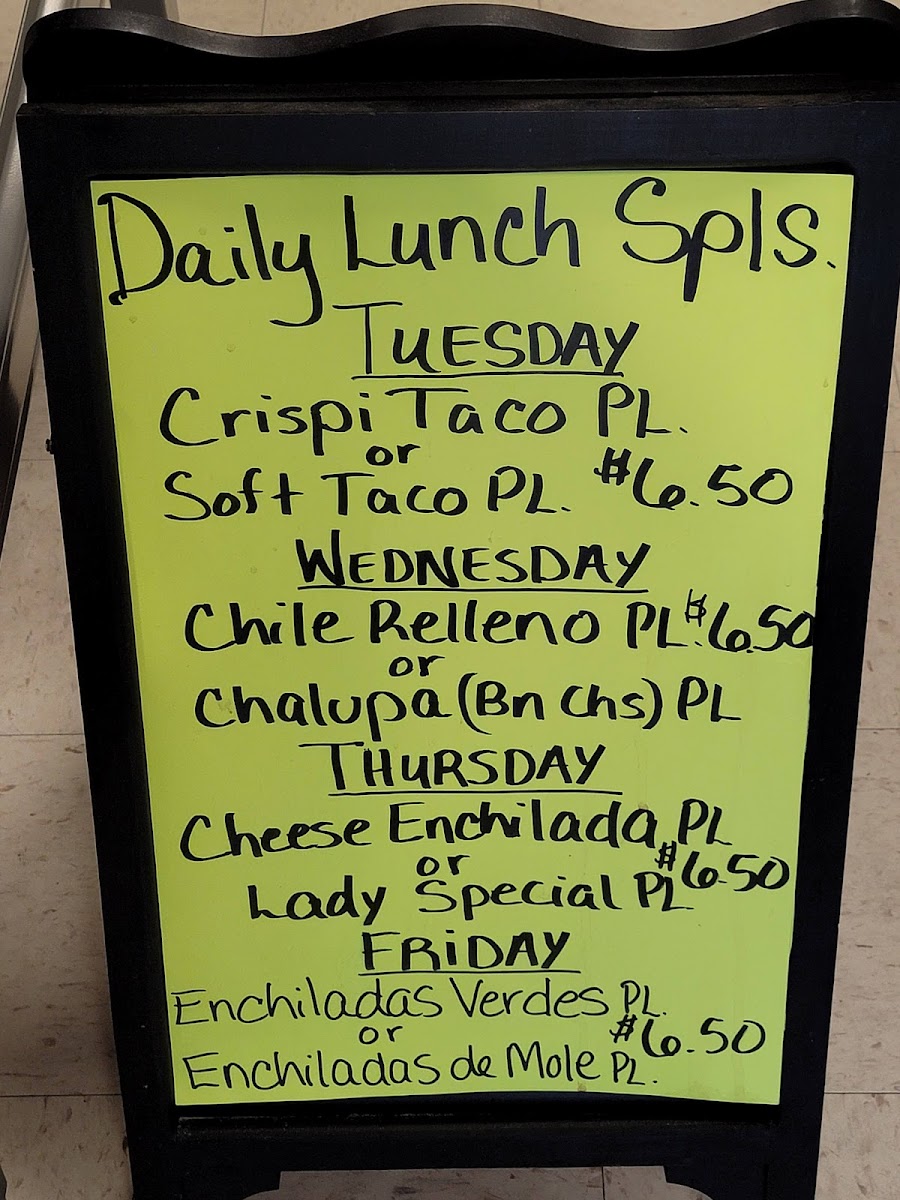 Daily Lunch Spls.
TUESDAY
Crispi Taco PL.
or
Soft Taco PL. $6.50
WEDNESDAY
Chile Relleno PL. $6.50
or
Chalupa (Bn Chs) PL
THURSDAY
Cheese Enchilada PL
or
Lady Special PL $6.50
FRiDAY
Enchiladas Verdes PL.
or
Enchiladas de Mole PL. $6.50